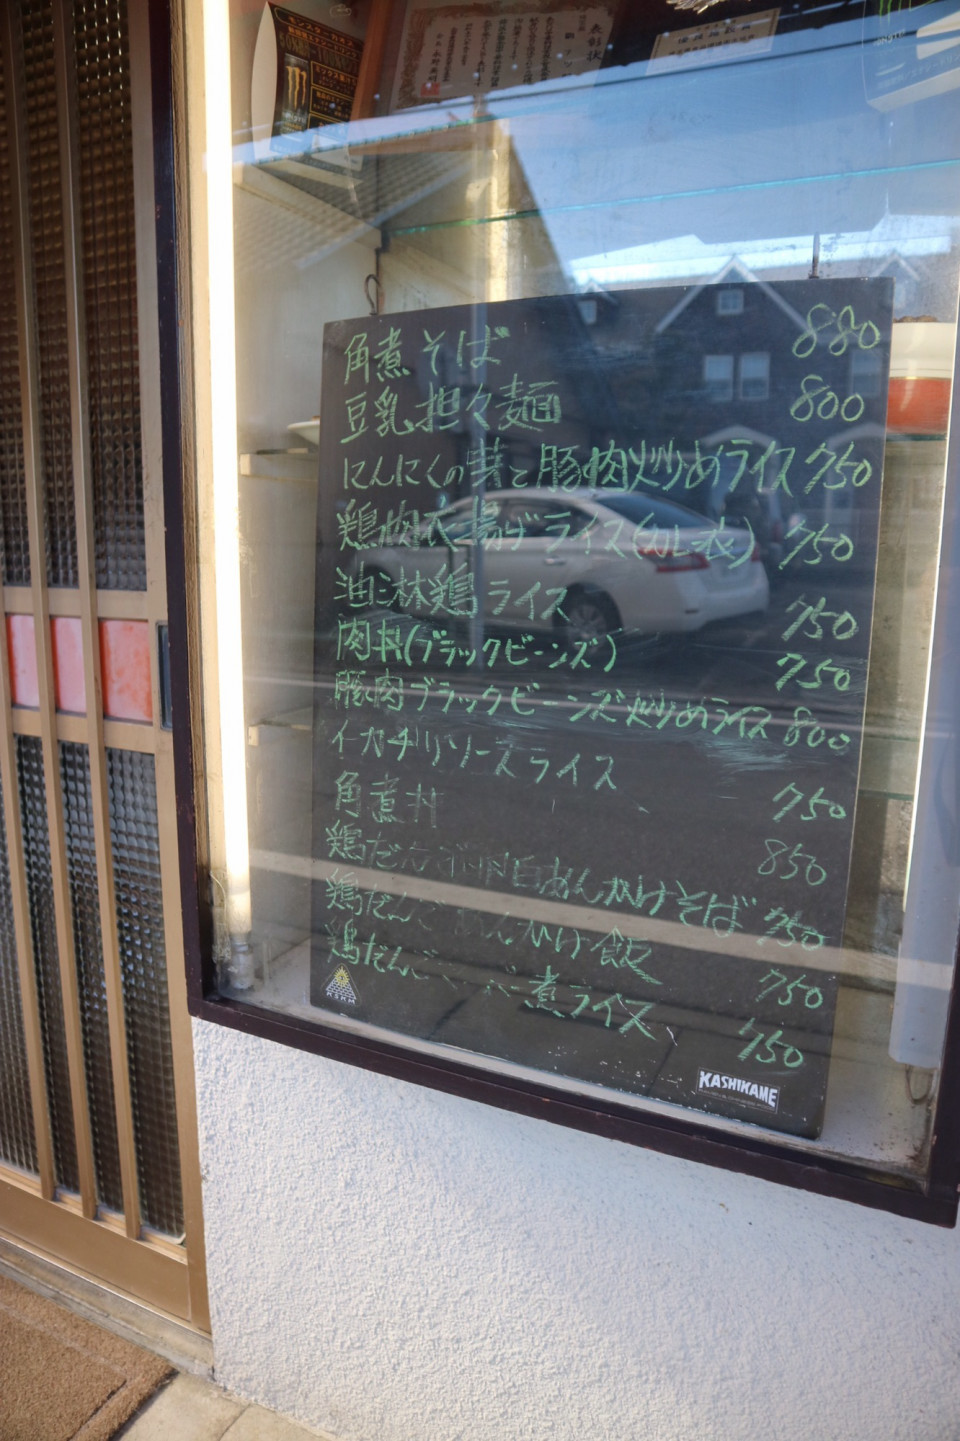 表彰状
角煮そば 880
豆乳担々麺 800
にんにくの芽と豚肉炒めライス 750
鶏肉衣揚げライス(カレー衣) 750
油淋鶏ライス 750
肉丼(ブラックビーンズ) 750
豚肉ブラックビーンズ炒めライス 800
イカチリソースライス 750
角煮丼 850
鶏だんご 白あんかけそば 750
鶏だんごあんかけ飯 750
鶏だんご 煮ライス 750
KASHIKAME